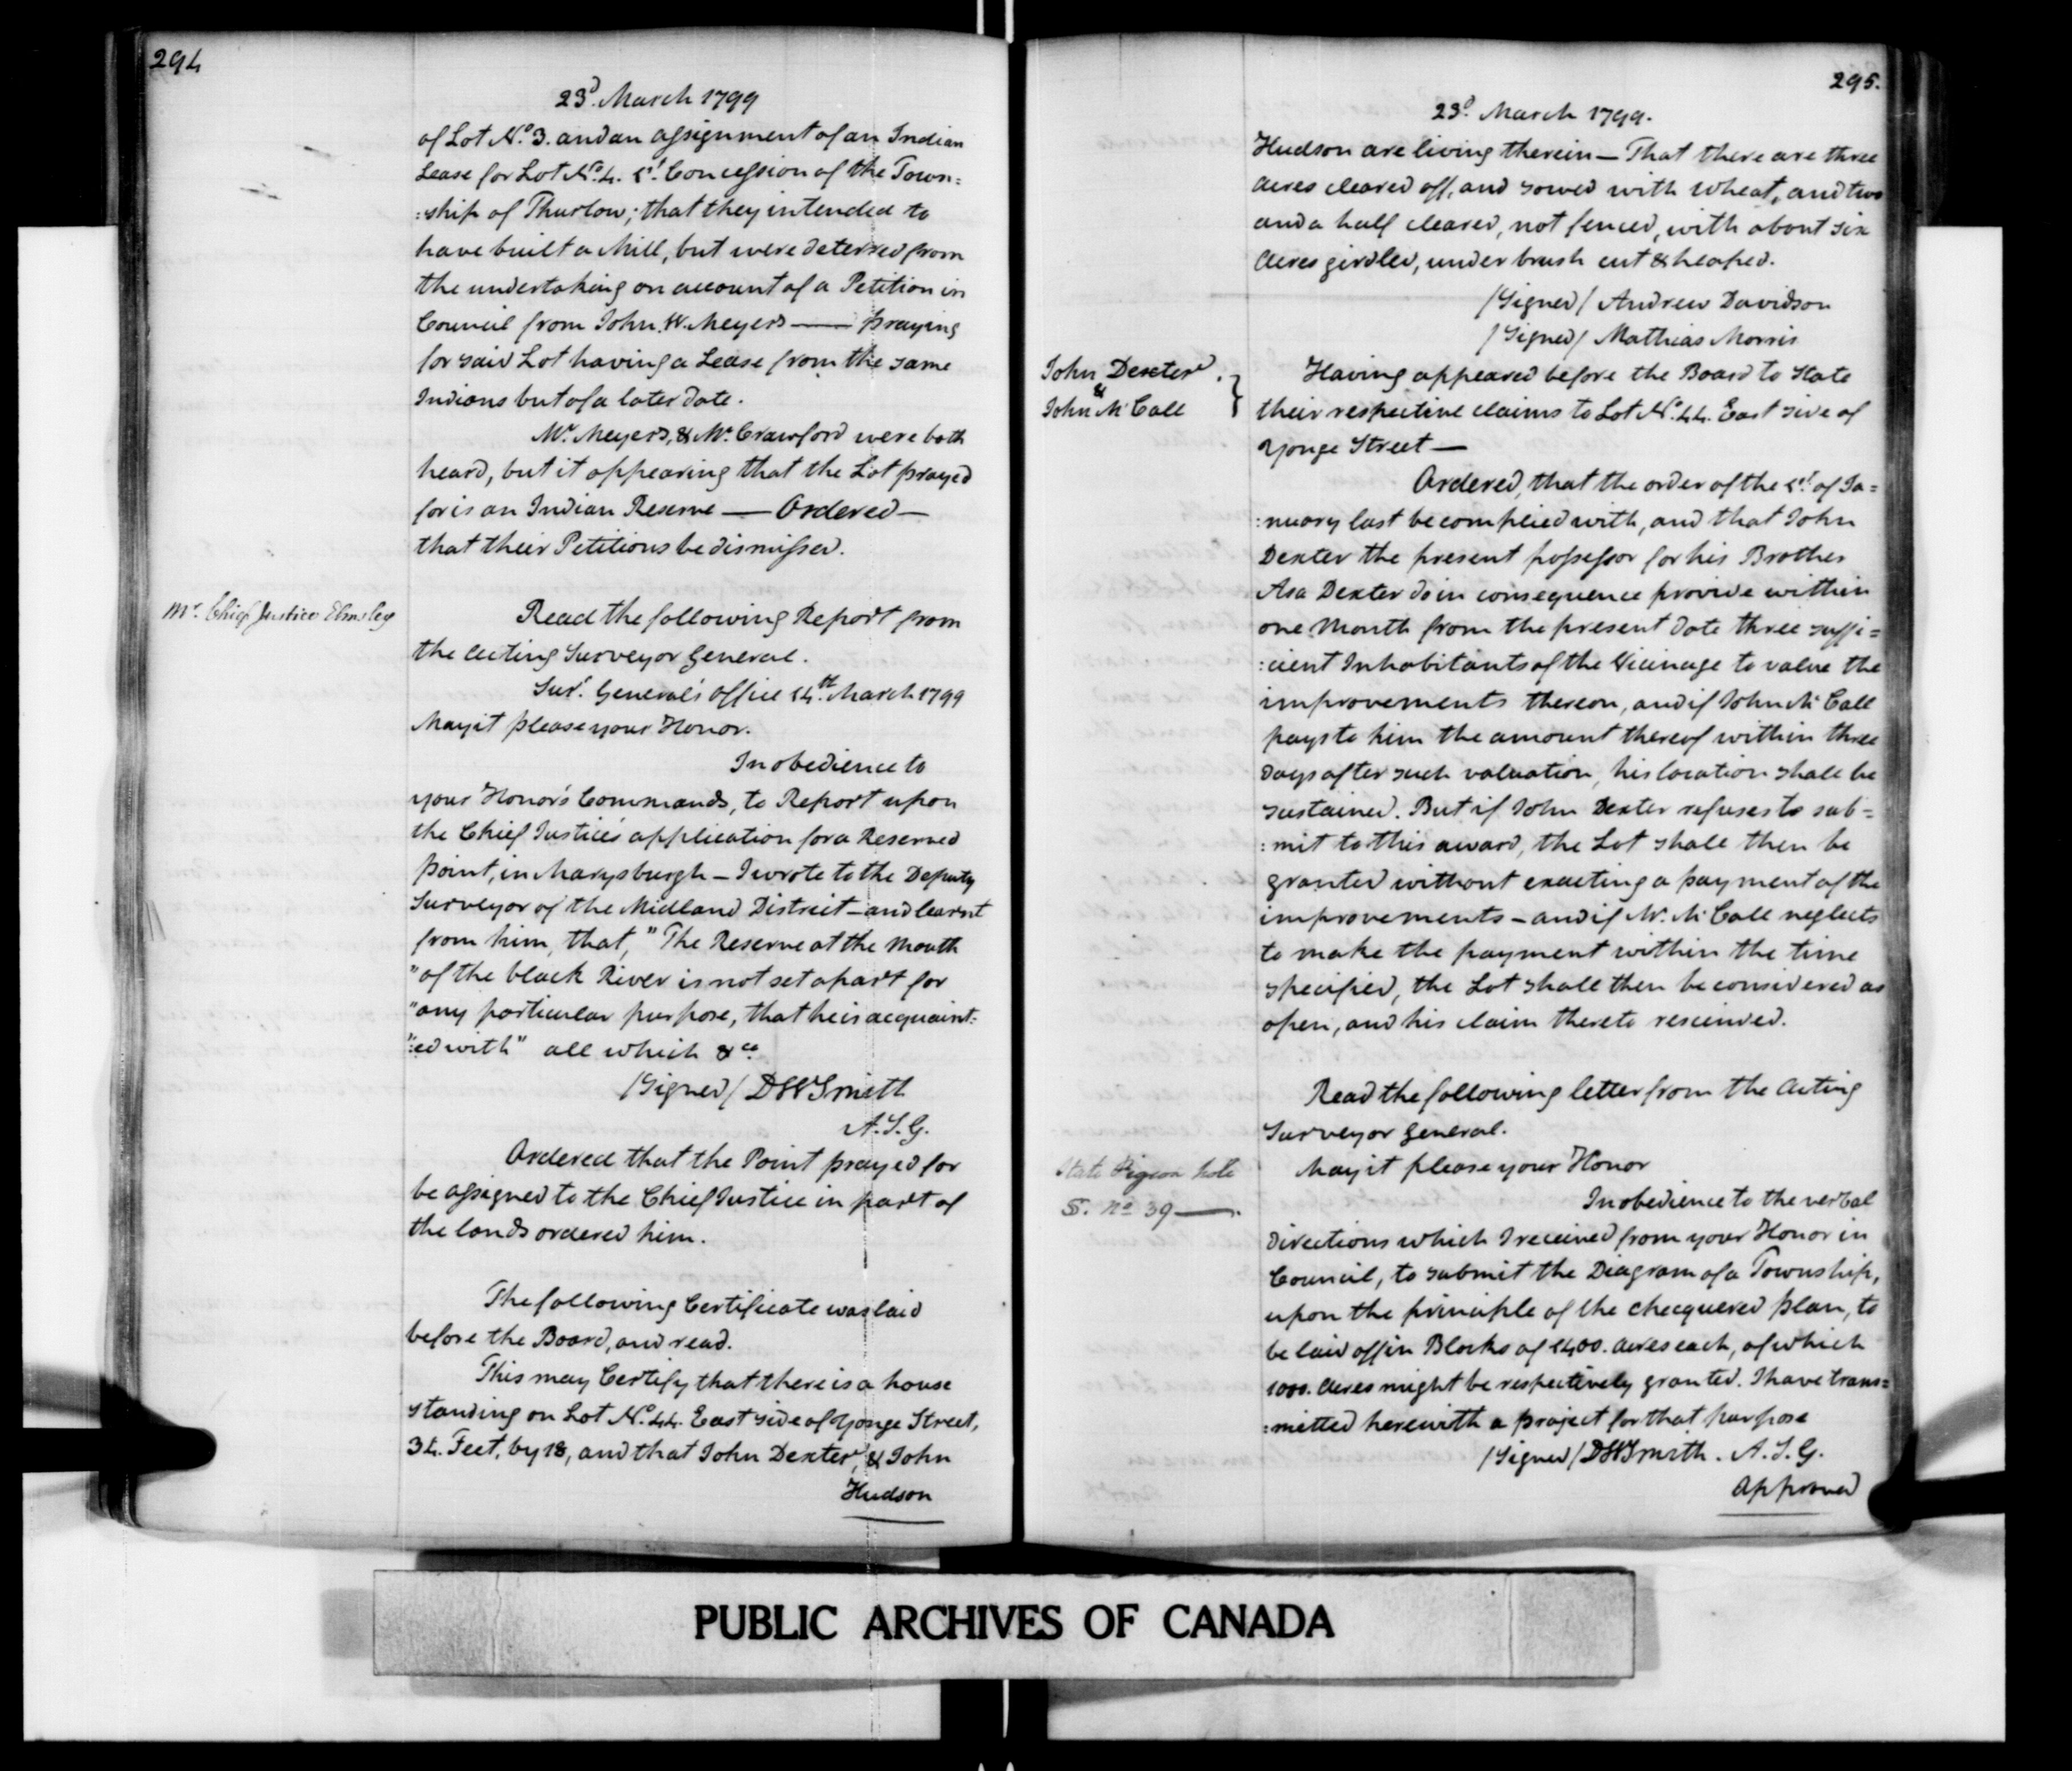 294
23d. March 1799
of Lot No. 3. and an assignment of an Indian
Lease for Lot No. 4. 1st. Concession of the Town=
:ship of Thurlow; that they intended to
have built a Mill, but were deterred from
the undertaking on account of a Petition in
Council from John W. Meyers —— praying
for said Lot having a Lease from the same
Indians but of a later date.
Mr. Meyers, & Mr. Crawford were both
heard, but it appearing that the Lot prayed
for is an Indian Reserve — Ordered —
that their Petitions be dismissed.
Mr. Chief Justice Elmsley
Read the following Report from
the acting Surveyor General.
Surr. General's Office 14th. March 1799
May it please your Honor.
In obedience to
your Honor's Commands, to Report upon
the Chief Justice's application for a Reserved
point, in Marysburgh — I wrote to the Deputy
Surveyor of the Midland District — and learnt
from him, that, "The Reserve at the Mouth
"of the black River is not set apart for
"any particular purpose, that he is acquaint:
":ed with" all which &ca.
/Signed/ DW Smith
A.S.G.
Ordered that the Point prayed for
be assigned to the Chief Justice in part of
the lands ordered him.
The following Certificate was laid
before the Board, and read.
This may Certify that there is a house
standing on Lot No. 44. East side of Yonge Street,
34. Feet, by 18, and that John Dexter, & John
Hudson
295.
23d. March 1799.
Hudson are living therein — That there are three
acres cleared off, and sowed with Wheat, and two
and a half cleared, not fenced, with about six
Acres girdled, under brush cut & heaped.
/Signed/ Andrew Davidson
/Signed/ Mathias Morris
John Dexter
&
John McCall }
Having appeared before the Board to State
their respective claims to Lot No. 44. East side of
Yonge Street —
Ordered, that the order of the 1st. of Ja=
:nuary last be complied with, and that John
Dexter the present possessor for his Brother
Asa Dexter do in consequence provide within
one Month from the present date three suffi=
:cient Inhabitants of the Vicinage to value the
improvements thereon, and if John McCall
pays to him the amount thereof within three
days after such valuation, his location shall be
sustained. But if John Dexter refuses to sub=
:mit to this award, the Lot shall then be
granted without exacting a payment of the
improvements — and if Mr. McCall neglects
to make the payment within the time
specified, the Lot shall then be considered as
open, and his claim thereto rescinded.
Read the following letter from the Acting
Surveyor General.
State Pigeon hole
S. No 39 —.
May it please your Honor
In obedience to the verbal
directions which I received from your Honor in
Council, to submit the Diagram of a Township,
upon the principle of the checquered plan, to
be laid off in Blocks of 1400. acres each, of which
1000. Acres might be respectively granted. I have trans=
:mitted herewith a project for that purpose
/Signed/ DW Smith. A.S.G.
Approved
PUBLIC ARCHIVES OF CANADA